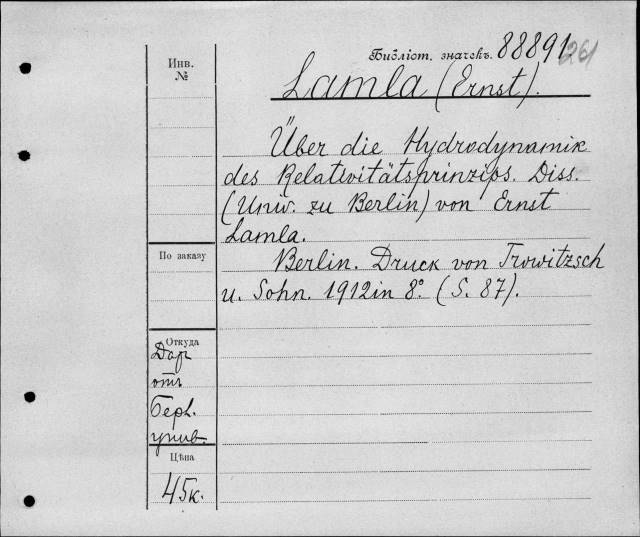 Библіот. значекъ. 88891
261
Инв.
№
Lamla (Ernst).
Über die Hydrodynamik
des Relativitätsprinzips. Diss.
(Univ. zu Berlin) von Ernst
Lamla.
По заказу
Berlin. Druck von Trowitzsch
u. Sohn. 1912 in 8° (S. 87).
Откуда
Дар
отъ
Берл.
унив.
Цѣна
45к.